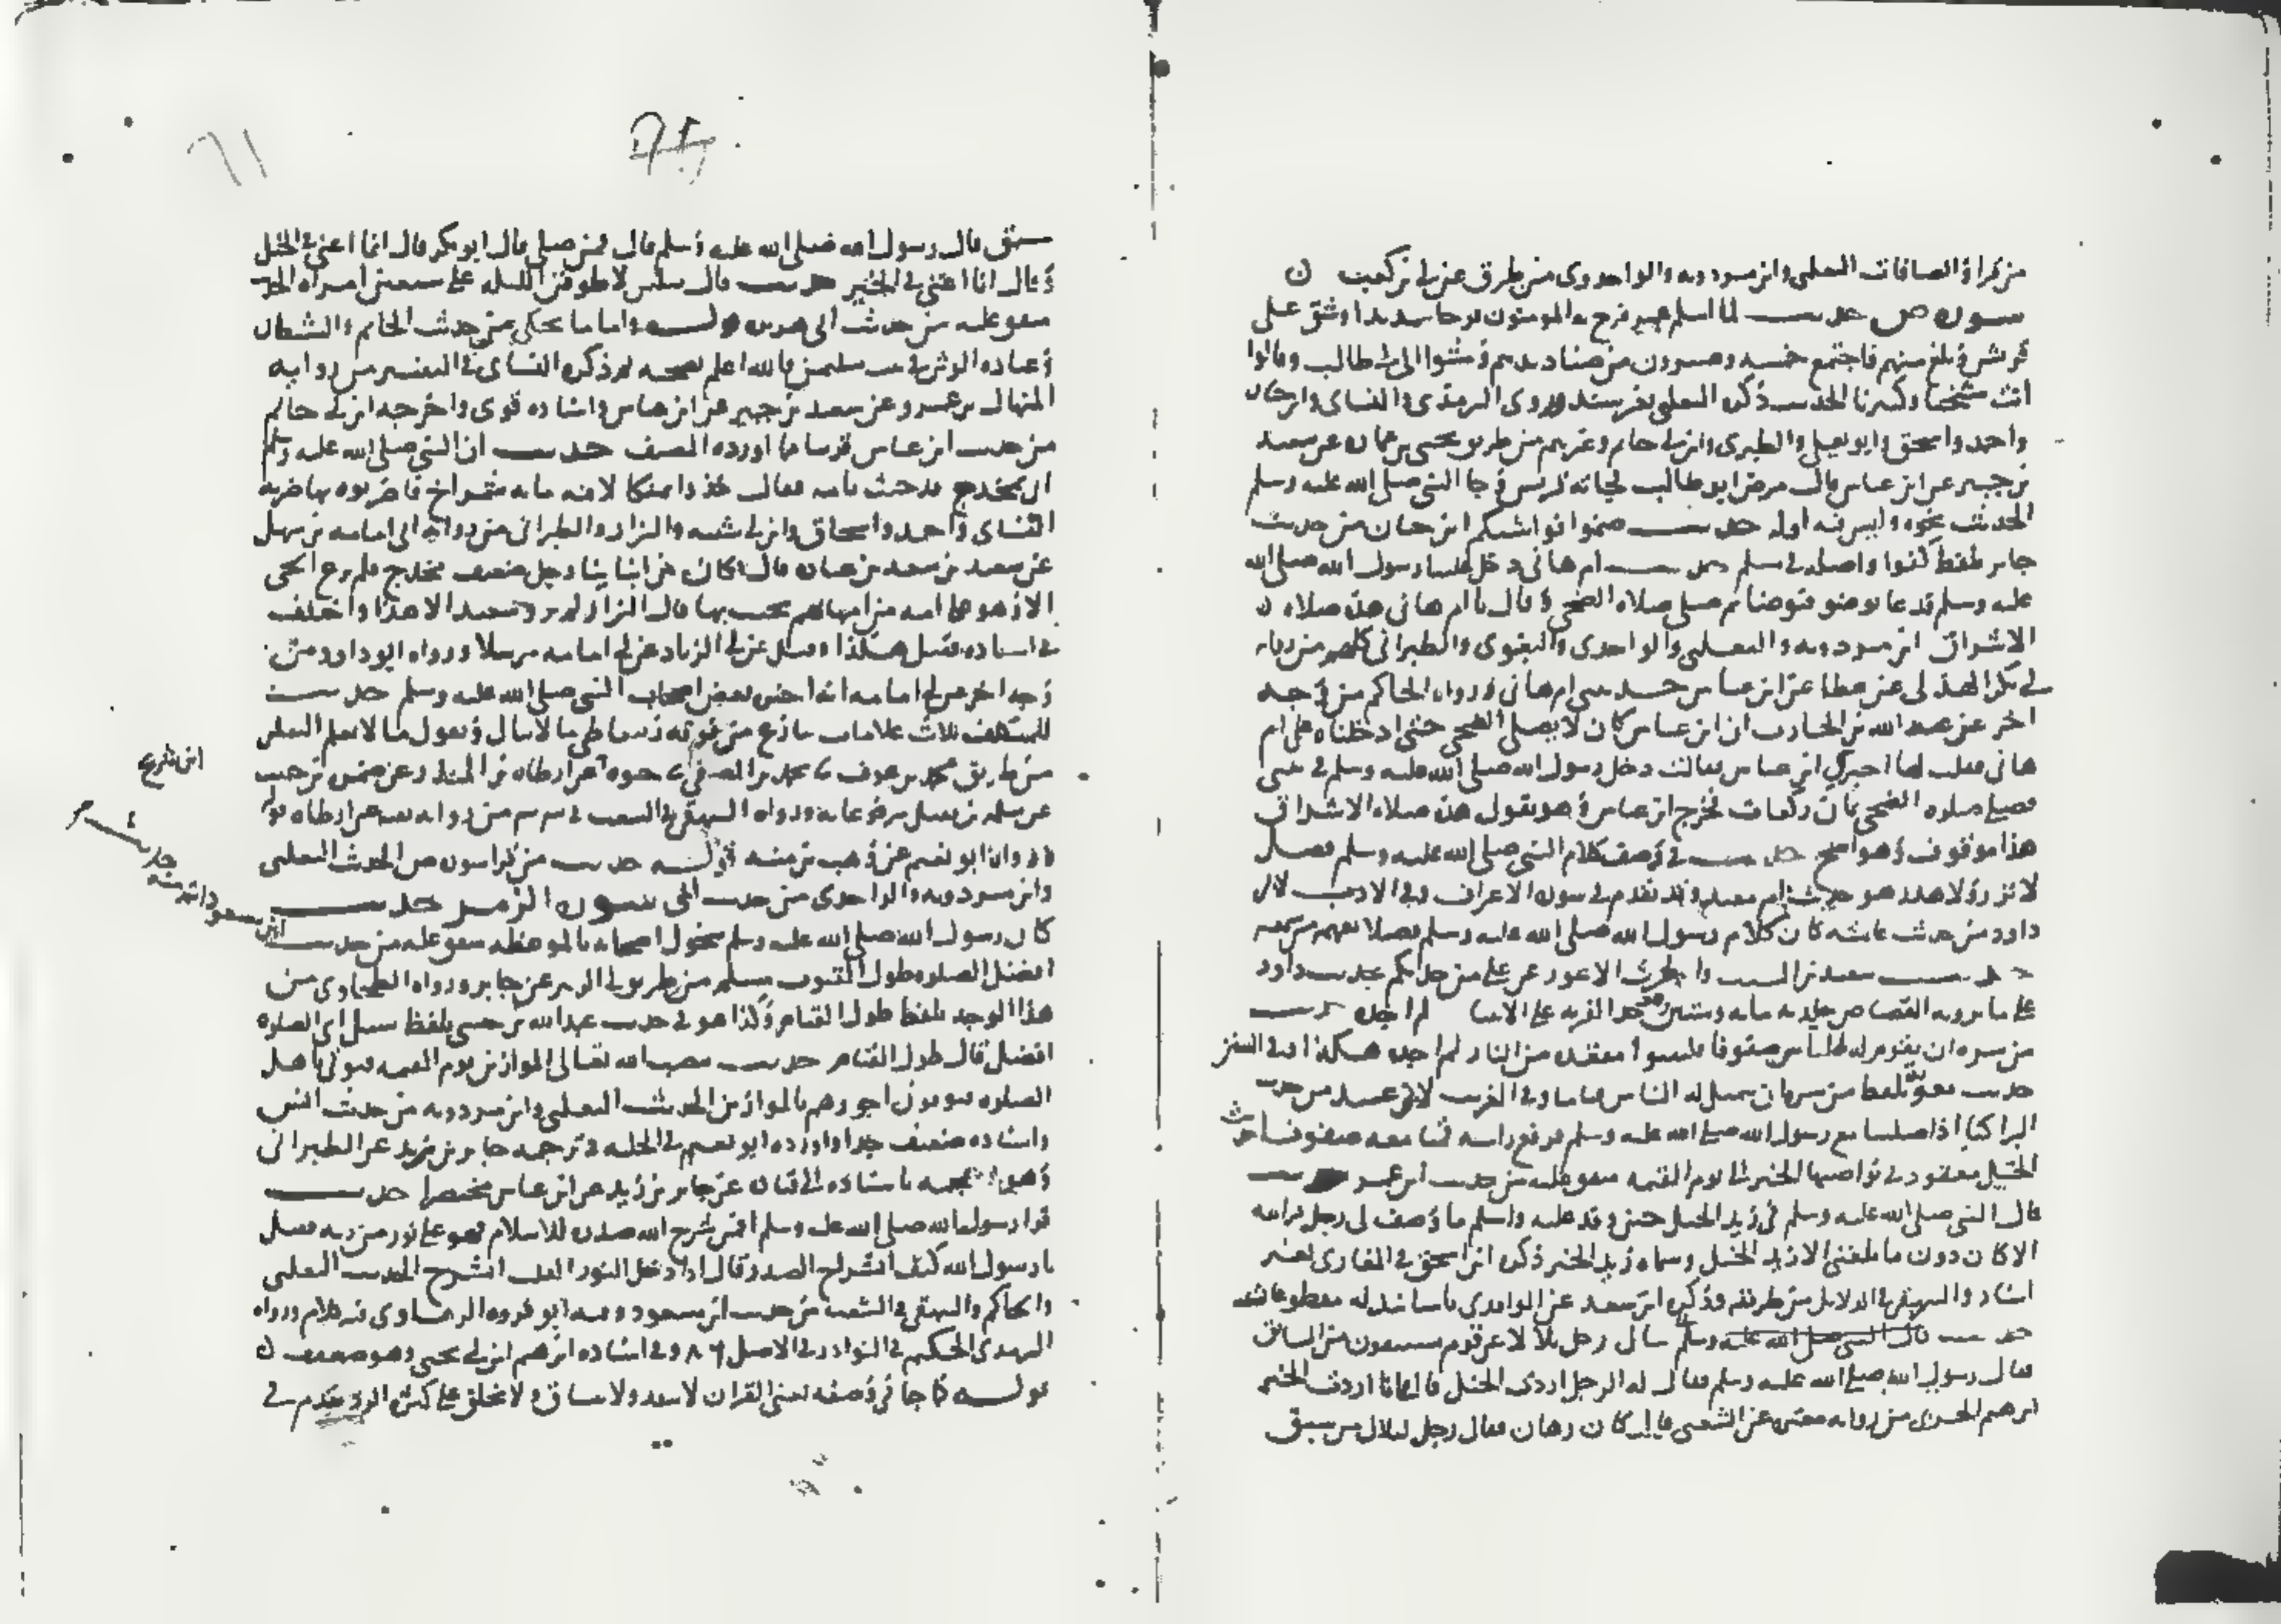 من قرا والصافات الثعلبي وابن مردويه والواحدي من طرق عن ابي بن كعب ن
سورة ص حديث لما اسلم عمر فرح به المومنون فرحا شديدا وشق على
قريش وبلغ منهم فاجتمع خمسة وعشرون من صناديدهم ومشوا الى ابي طالب وقالوا
انت شيخنا وكبيرنا الحديث ذكره الثعلبي بغير سند وروى الترمذي والنساي وابن حبان
واحمد واسحق وابو يعلى والطبري وابن ابي حاتم وغيرهم من طريق يحيى بن عمارة عن سعيد
بن جبير عن ابن عباس قال مرض ابو طالب فجاته قريش وجا النبي صلى الله عليه وسلم
الحديث نحوه وليس فيه اوله حديث صموا نواشيكم ابن حبان من حديث
جابر بلفظ كفوا واصله في مسلم حديث ام هاني دخل علينا رسول الله صلى الله
عليه وسلم فدعا بوضو فتوضا ثم صلى صلاة الضحى وقال يا ام هاني هذه صلاة ن
الاشراق ابن مردويه والثعلبي والواحدي والبغوي والطبراني كلهم من رواية
ابي بكر الهذلي عن عطا عن ابن عباس حدثتني ام هاني ورواه الحاكم من وجه
اخر عن عبد الله بن الحارث ان ابن عباس كان لا يصلي الضحى حتى ادخلناه على ام
هاني فقلت لها اخبري ابن عباس فقالت دخل رسول الله صلى الله عليه وسلم في بيتي
فصلى صلوة الضحى ثمان ركعات فخرج ابن عباس وهو يقول هذه صلاة الاشراق
هذا موقوف وهو اصح حديث في وصف كلام النبي صلى الله عليه وسلم فصل
لا نزر ولا هدر هو حديث ام معبد وقد تقدم في سورة الاعراف وفي الادب لابي
داود من حديث عائشة كان كلام رسول الله صلى الله عليه وسلم فصلا يفهمه من سمعه
حديث سعيد بن المسيب والحرث الاعور عن علي من حدثكم بحديث داود
على ما يرويه القصاص جلدته ماية وستين وهو حد الفرية على الانبيا لم اجده حديث
من سره ان يقوم له الناس صفوفا فليتبوا مقعده من النار لم اجده هكذا وفي السنن
حديث معوية بلفظ من سره ان يمثل له الناس قياما وفي الغريب لابي عبيد من حديث
البرا كنا اذا صلينا مع رسول الله صلى الله عليه وسلم فرفع راسه قمنا معه صفوفا حديث
الخيل معقود في نواصيها الخير الى يوم القيمة متفق عليه من حديث ابن عمر حديث
قال النبي صلى الله عليه وسلم في زيد الخيل حين وفد عليه واسلم ما وصف لي رجل فرايته
الا كان دون ما بلغني الا زيد الخيل وسماه زيد الخير ذكره ابن اسحق في المغازي بغير
اسناد والبيهقي في الدلايل من طريقه وذكره ابن سعد عن الواقدي باسانيد له مقطوعة
حديث قال النبي صلى الله عليه وسلم سال رجل بلالا عن قوم يستبقون من السابق
فقال رسول الله صلى الله عليه وسلم فقال له الرجل اردت الخيل قال وانا اردت الخير
ابرهيم الحربي من رواية مغيرة عن الشعبي قال كان رهان فقال رجل لبلال من سبق
سبق قال رسول الله صلى الله عليه وسلم قال فمن صلى قال ابو بكر قال انما اعني في الخيل
وقال انا اعني في الخير حديث قال سليمن لاطوفن الليلة على سبعين امراة الحديث
متفق عليه من حديث ابي هريرة قوله واما ما يحكى من حديث الخاتم والشيطان
وعبادة الوثن في بيت سليمن فالله اعلم بصحته ثم ذكره النساي في التفسير من رواية
المنهال بن عمرو عن سعيد بن جبير عن ابن عباس واسناده قوي واخرجه ابن ابي حاتم
من حديث ابن عباس قريبا مما اورده المصنف حديث ان النبي صلى الله عليه وسلم
اتى بمخدج قد خبث بامة فقال خذوا عثكالا فيه ماية شمراخ فاضربوه بها ضربة
النساي واحمد واسحاق وابن ابي شيبة والبزار والطبراني من رواية ابي امامة بن سهل
عن سعيد بن سعد بن عبادة قال كان بين ابياتنا رجل ضعيف مخدج فلم يرع الحي
الا وهو على امة من امايهم يخبث بها قال البزار لم يرو سعيد الا هذا واختلف
في اسناده فقيل هكذا وقيل عن ابي الزناد عن ابي امامة مرسلا ورواه ابو داود من
وجه اخر عن ابي امامة انه اخبره بعض اصحاب النبي صلى الله عليه وسلم حديث
للمتكلف ثلاث علامات ينازع من فوقه ويتعاطى ما لا ينال ويقول ما لا يعلم الثعلبي
من طريق محمد بن عوف
عن سلمة بن نفيل مرفوعا به ورواه البيهقي في الشعب
ورواه ابو نعيم عن وهب بن منبه قوله حديث من قرا سورة ص الحديث الثعلبي
وابن مردويه والواحدي من حديث ابي سورة الزمر حديث
كان رسول الله صلى الله عليه وسلم يتخول اصحابه بالموعظة متفق عليه من حديث
ابن مسعود
افضل الصلوة طول القنوت مسلم من طريق ابي الزبير عن جابر ورواه الطحاوي من
هذا الوجه بلفظ طول القيام وكذا هو في حديث عبد الله بن حبشي بلفظ سئل اي الصلوة
افضل قال طول القيام حديث ينصب الله تعالى الموازين يوم القيمة فيوتى باهل
الصلوة فيوفون اجورهم بالموازين الحديث الثعلبي وابن مردويه من حديث انس
واسناده ضعيف جدا واورده ابو نعيم في الحلية في ترجمة جابر بن زيد عن الطبراني
وهو في معجمه باسناده الى قتادة عن جابر بن زيد عن ابن عباس مختصرا حديث
قرا رسول الله صلى الله عليه وسلم افمن شرح الله صدره للاسلام فهو على نور من ربه فقيل
يا رسول الله كيف انشراح الصدر قال اذا دخل النور القلب انشرح الحديث الثعلبي
والحاكم والبيهقي في الشعب من حديث ابن مسعود وفيه ابو فروة الرهاوي فيه كلام ورواه
الترمذي الحكيم في النوادر في الاصل ٨٦ وفي اسناده ابرهيم ابن ابي يحيى وهو ضعيف ن
قوله كما جا في وصفه يعني القران لا يتفه ولا يتشان ولا يخلق على كثرة الرد تقدم في